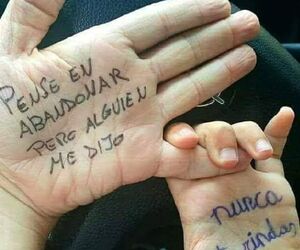 PENSE EN
ABANDONAR
PERO ALGUIEN
ME DIJO
nunca
rindas